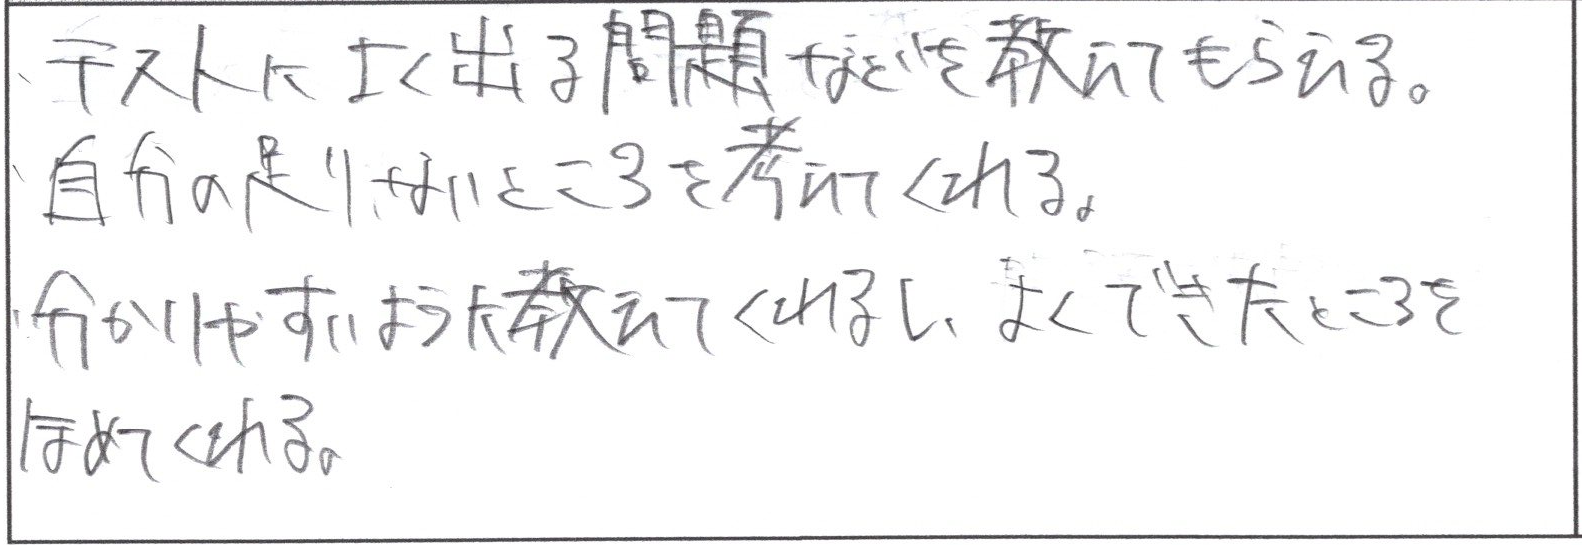 ・テストによく出る問題などを教えてもらえる。
・自分の足りないところを考えてくれる。
・分かりやすいように教えてくれるし、よくできたところを
ほめてくれる。